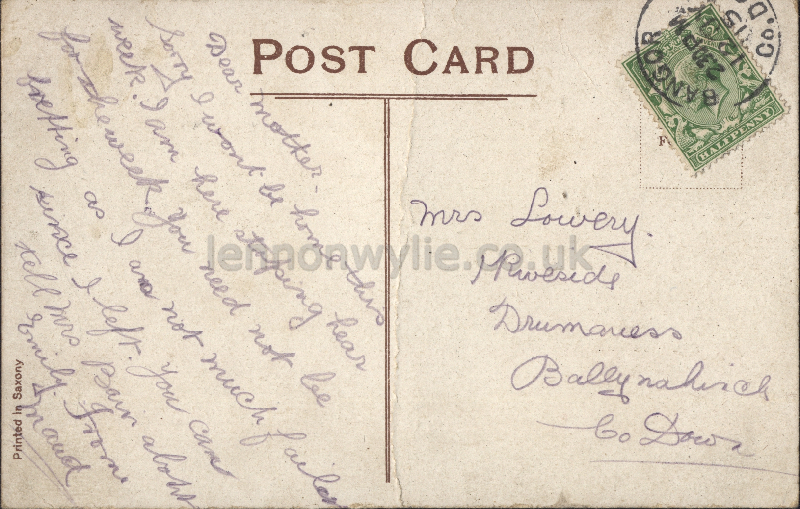 POST CARD
Dear mother -
Sorry I wont be home this
week. I am here stopping hear
for the week. You need not be
fretting as I am not much
since I left. You can
tell Mrs about
Emily from
Maud
Mrs Lowery.
Riveside
Drumaness
Ballynahinch
Co Down
BANGOR
CO. DO
HALFPENNY
Printed in Saxony
lennonwylie.co.uk